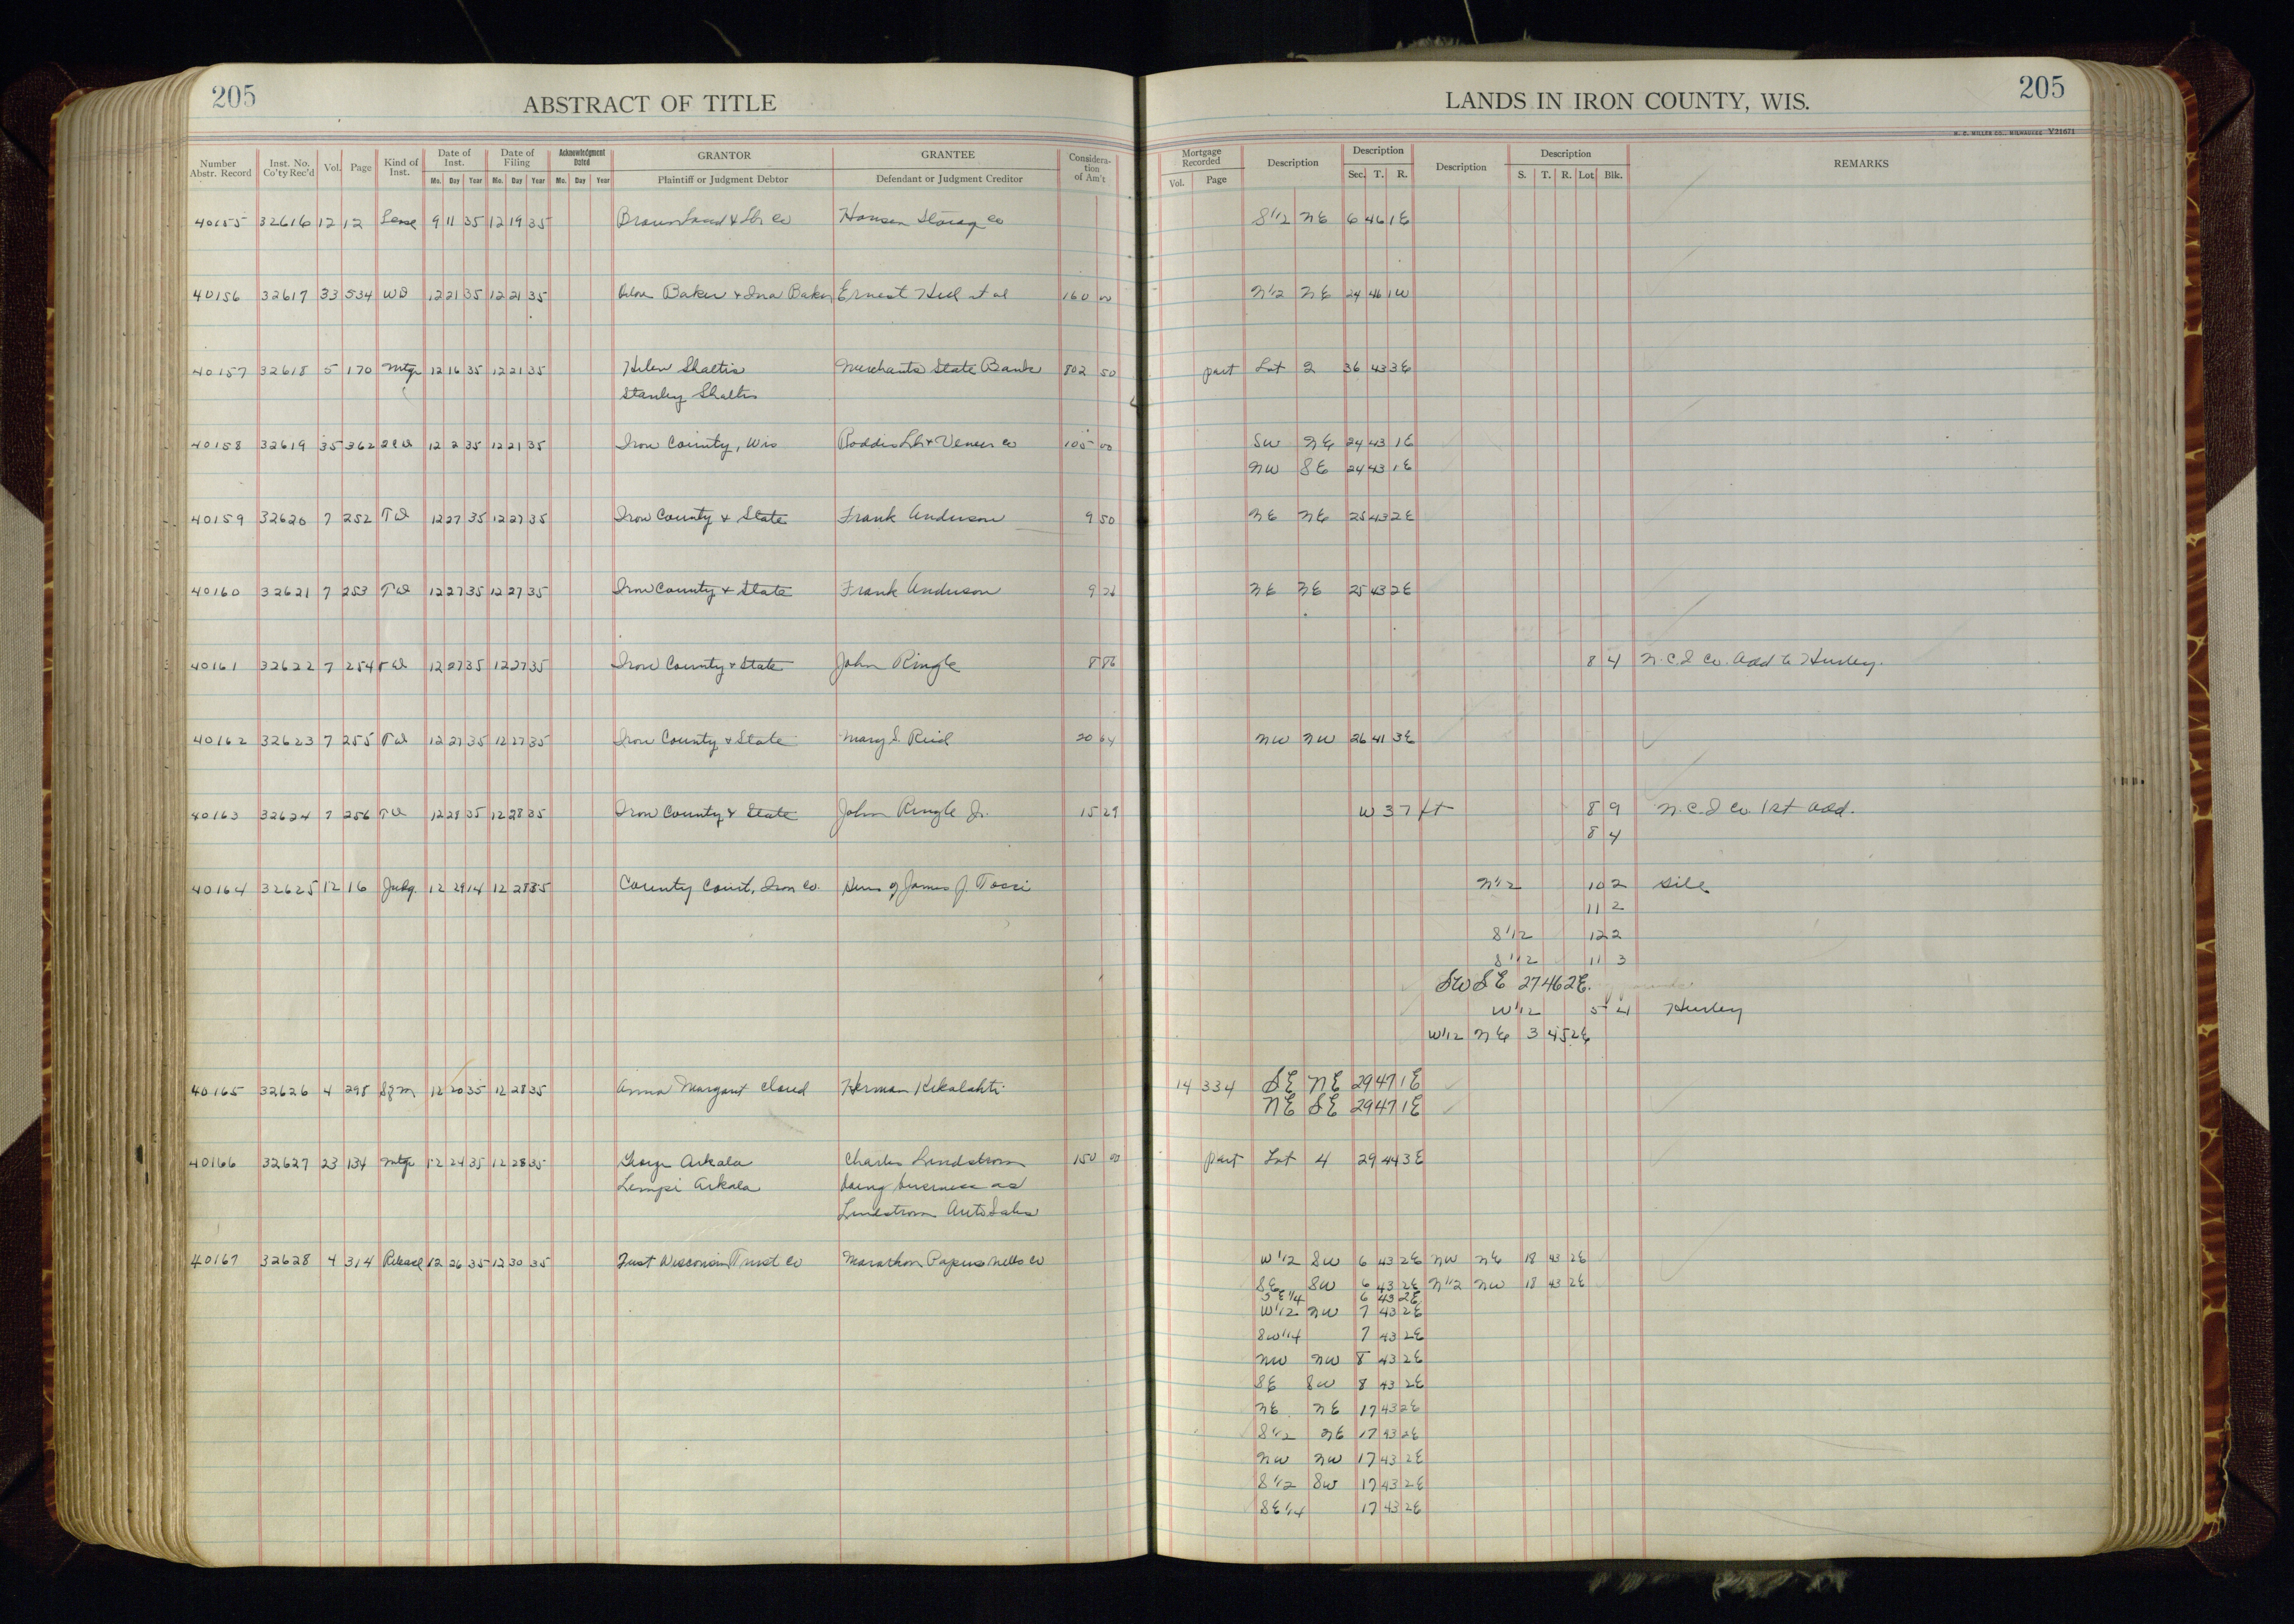 205 ABSTRACT OF TITLE LANDS IN IRON COUNTY, WIS. 205
H. C. MILLER CO., MILWAUKEE V21671
Number Abstr. Record Inst. No. Co'ty Rec'd Vol. Page Kind of Inst. Date of Inst. Date of Filing Acknowledgment Dated GRANTOR GRANTEE Consideration of Am't Mortgage Recorded Description Description Description Description REMARKS
Mo. Day Year Mo. Day Year Mo. Day Year Plaintiff or Judgment Debtor Defendant or Judgment Creditor Vol. Page Sec. T. R. S. T. R. Lot Blk.
40155 32616 12 12 Lease 9 11 35 12 19 35 Brown Land & Lbr Co Hansen Storage Co S 1/2 NE 6 46 1E
40156 32617 33 534 WD 12 21 35 12 21 35 Baker & Ina Baker Ernest Hill et al 160 00 N 1/2 NE 24 46 1W
40157 32618 5 170 Mtge 12 16 35 12 21 35 Helen Shaltis Merchants State Bank 802 50 part Lot 2 36 43 3E
Stanley Shaltis
40158 32619 35 362 QCD 12 2 35 12 21 35 Iron County, Wis Roddis Lbr & Veneer Co 105 00 SW NE 24 43 1E
NW SE 24 43 1E
40159 32620 7 252 TD 12 27 35 12 27 35 Iron County & State Frank Anderson 9 50 NE NE 25 43 2E
40160 32621 7 253 TD 12 27 35 12 27 35 Iron County & State Frank Anderson 9 26 NE NE 25 43 2E
40161 32622 7 254 TD 12 27 35 12 27 35 Iron County & State John Ringle 8 86 8 4 N.C.I Co. Add to Hurley.
40162 32623 7 255 TD 12 27 35 12 27 35 Iron County & State Mary S. Reid 20 64 NW NW 26 41 3E
40163 32624 7 256 TD 12 28 35 12 28 35 Iron County & State John Ringle Jr. 15 29 W 37 ft 8 9 N.C.I Co. 1st Add.
8 4
40164 32625 12 16 Judg. 12 29 14 12 28 35 County Court, Iron Co. Heirs of James J. Tossi N 1/2 10 2 Gile
11 2
S 1/2 12 2
S 1/2 11 3
SW SE 27 46 2E.
W 1/2 5 4 Hurley
W 1/2 NE 3 45 2E
40165 32626 4 298 12 20 35 12 28 35 Anna Margaret Cloud Herman Kekalahti 14 334 SE NE 29 47 1E
NE SE 29 47 1E
40166 32627 23 134 Mtge 12 24 35 12 28 35 George Arkala Charles Lindstrom 150 00 part Lot 4 29 44 3E
Lempi Arkala doing business as
Lindstrom Auto Sales
40167 32628 4 314 Release 12 26 35 12 30 35 First Wisconsin Trust Co Marathon Paper Mills Co W 1/2 SW 6 43 2E NW NE 18 43 2E
SE SW 6 43 2E N 1/2 NW 18 43 2E
SE 1/4 6 43 2E
W 1/2 NW 7 43 2E
SW 1/4 7 43 2E
NW NW 8 43 2E
SE SW 8 43 2E
NE NE 17 43 2E
S 1/2 NE 17 43 2E
NW NW 17 43 2E
S 1/2 SW 17 43 2E
SE 1/4 17 43 2E